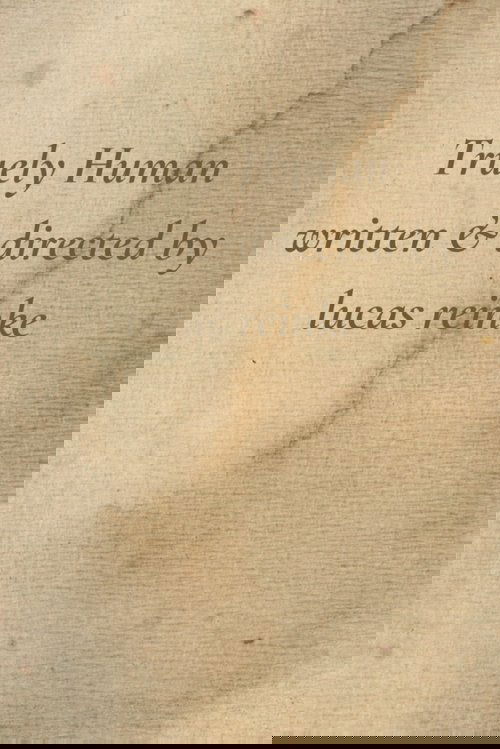 Truely Human
written & directed by
lucas reinke